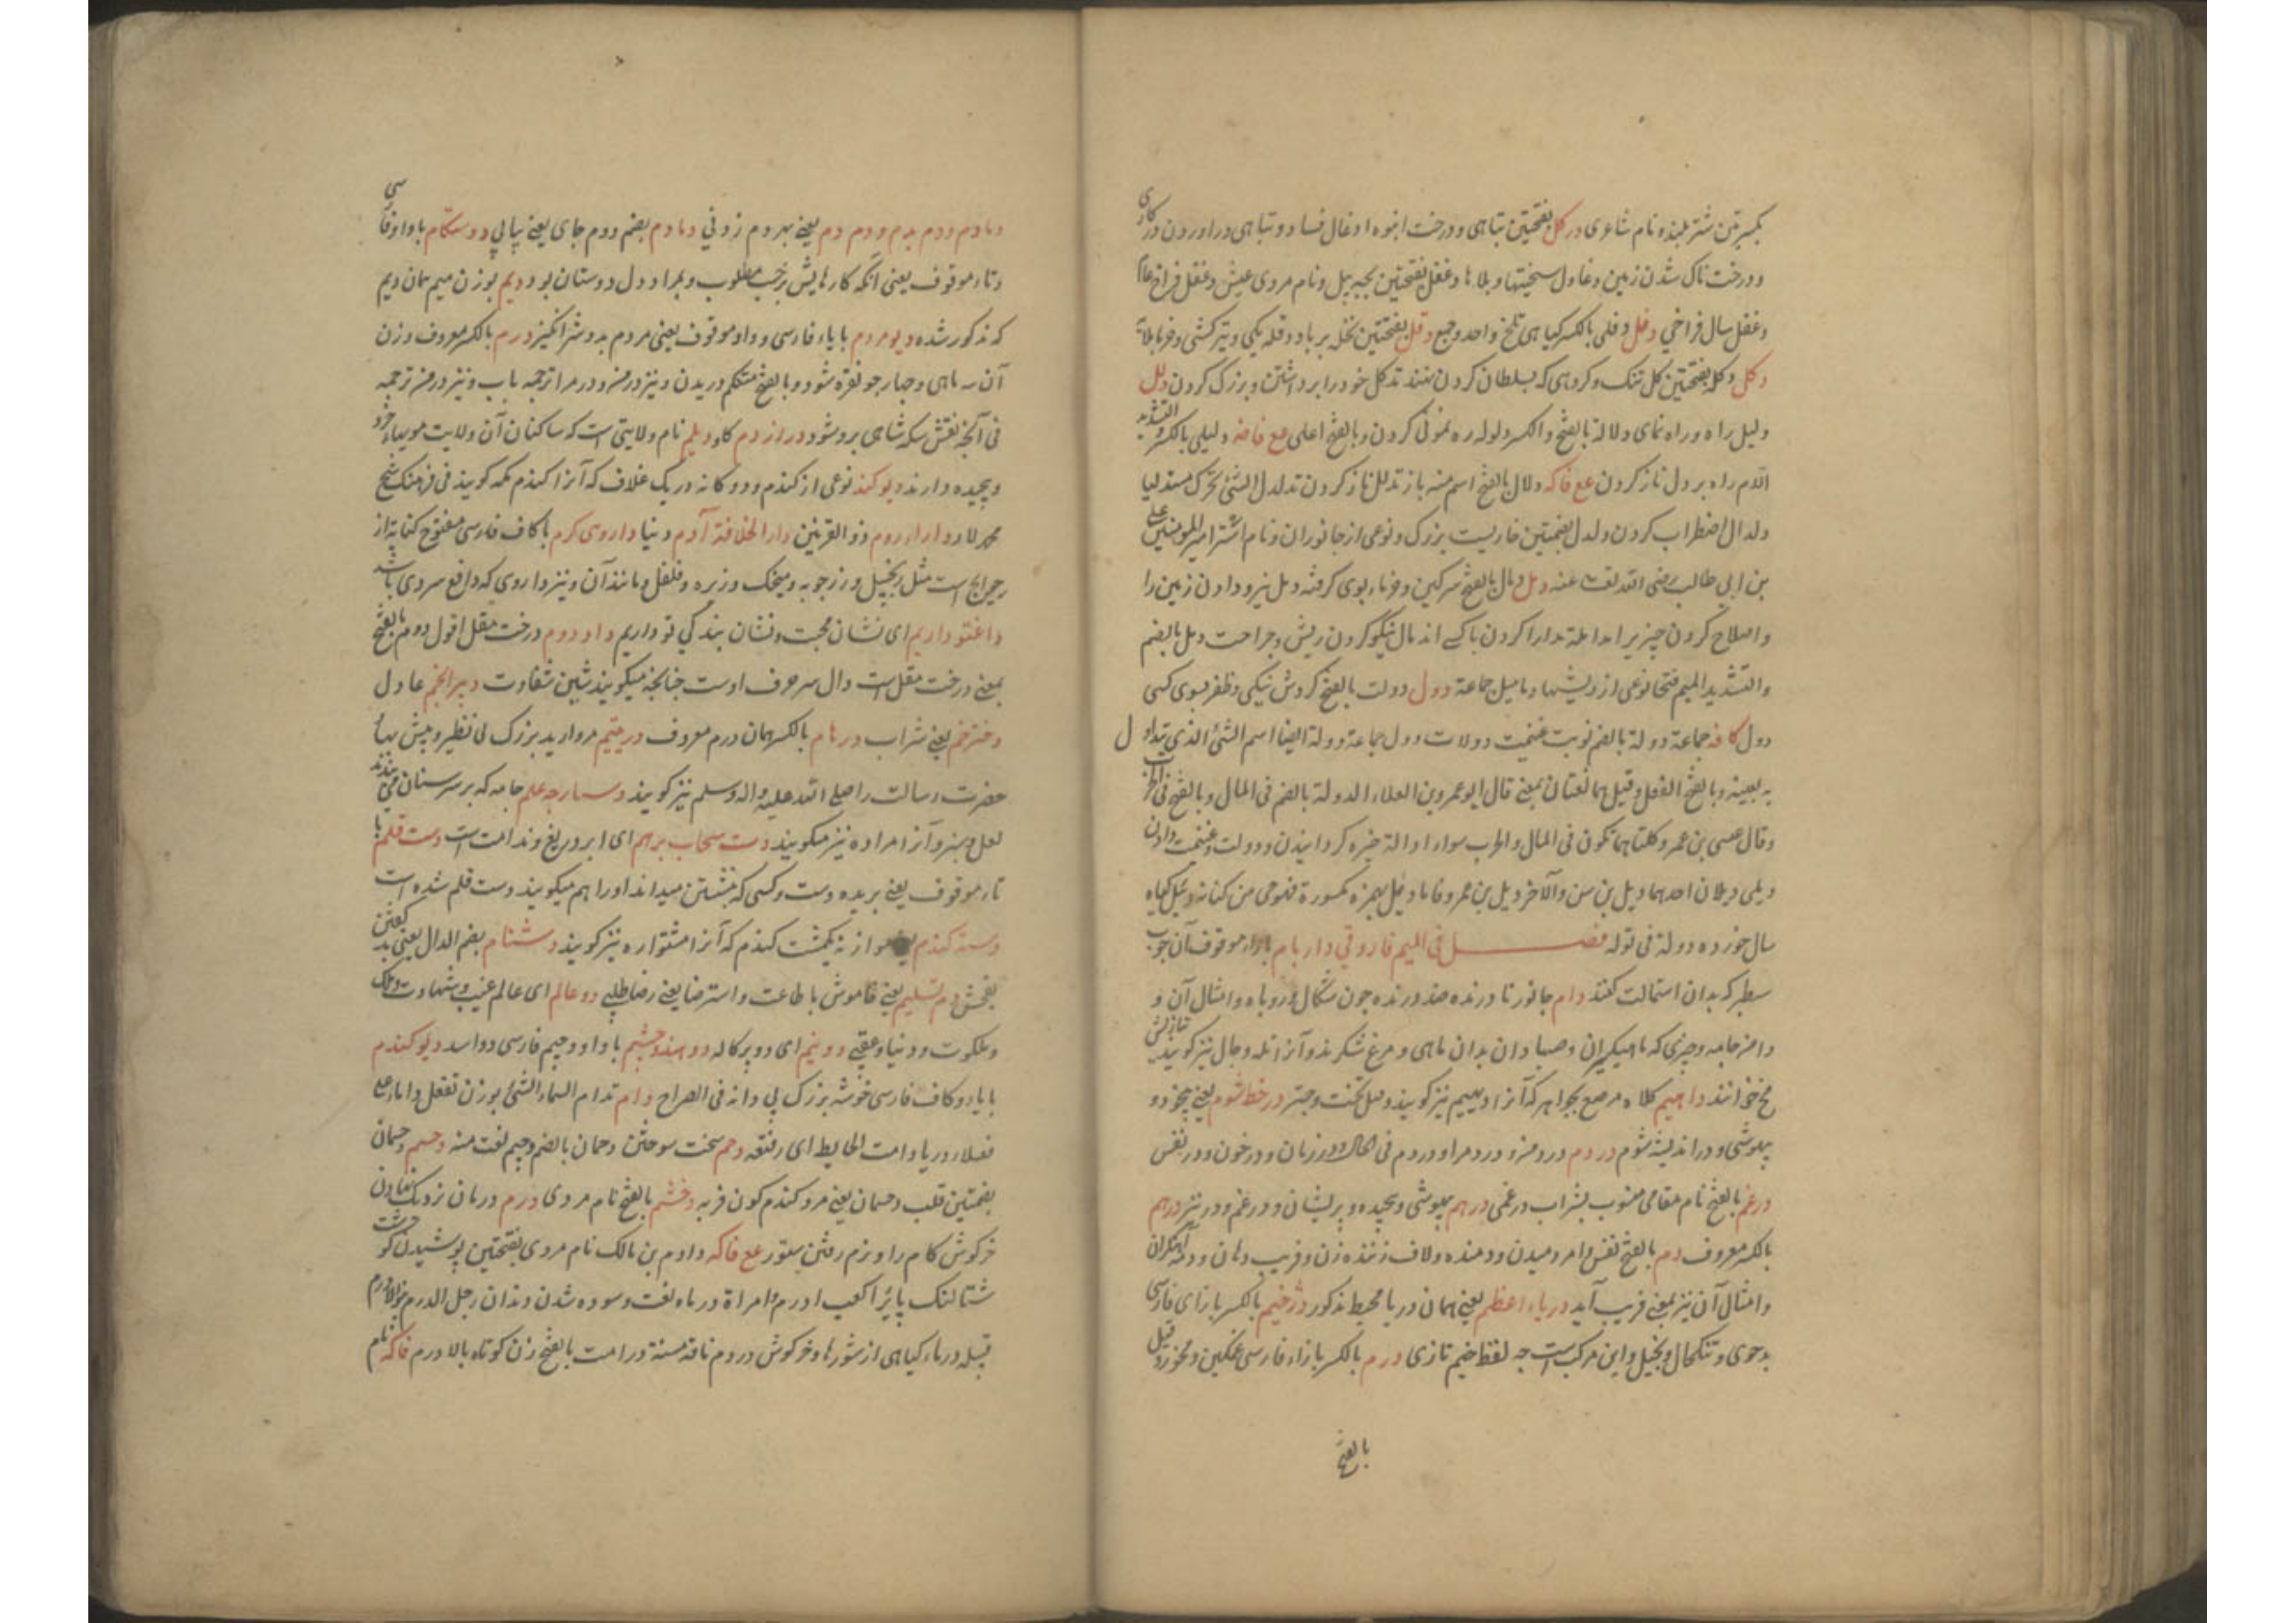 بکسرتین شتر بلند و نام شاعری در کل بفتحتین تباهی و درخت انبوه ادغال فساد و تباهی در اوردن در کاری
و درخت ناک شدن زمین دغاول سختیها و بلاها دغفل بفتحتین بچه پیل و نام مردی عیش دغفل فراخ
دغفل سال فراخی دفل دفلی بالکسر کیاهی تلخ واحد و جمع دقل بفتحتین نخله پر بار دقله یکی و تیر کشتی و خرما
دکل دکله بفتحتین کل تنک و کروهی که بسلطان کردن ننهند تدکل خود را برداشتن و بزرک کردن دلل
دلیل راه و راه نمای دلالة بالفتح والکسر دلوله ره نمونی کردن و بالفتح اعلی مع فاضه دلیلی بالکسر و التشدید
اللام راه بر دل ناز کردن مع فاکه دلال بالفتح اسم منه باز تدلل ناز کردن تدلدل الشئ تحرک متدلیا
دلدال اضطراب کردن دلدل بضمتین خارپشت بزرک و نوعی از جانوران و نام اشتر امیرالمومنین علی
بن ابی طالب رضی الله تعالی عنه دمل دمال بالفتح سرکین و خرماء بوی کرفته دمل نیرو دادن زمین را
و اصلاح کردن چیزیرا مداملة مدارا کردن با کسی اندمال نیکو کردن ریش و جراحت دمل بالضم
والتشدید المیم فتحا نوعی از ریشها دمامیل جماعة دول دولت بالفتح کردش نیکی و ظفر بسوی کسی
دول کافه جماعة دولة بالضم نوبت غنیمت دولات و دول جماعة دولة ایضا اسم الشئ الذی یتداول
به بعینه و بالفتح الفعل و قیل هما لغتان بمعنی قال ابو عمرو بن العلاء الدولة بالضم فی المال و بالفتح فی الحرب
و قال عیسی بن عمر و کلتاهما تکون فی المال و الحرب سواء ادالة چیره کردانیدن و دولت و غنیمت دادن
دیلی دیلان احدهما دیل بن سن والآخر دیل بن عمرو فاما دئل بهمزه مکسورة فهو حی من کنانه دئل کیاه
سال خورده دولة فی تولة فصل فی المیم فاروقی دار بام باراء موقوف آن چوب
سطبر که بدان استمالت کنند دام جانور نا درنده ضد درنده چون شکال و روباه و امثال آن و
دامر جامه و چیزی که ماهیکیران و صیادان بدان ماهی و مرغ شکرند و آنرا تله و جال نیز کویند
مخ خوانند داهیم کلاه مرصع بجواهر که آنرا دیهیم نیز کویند و مثل تخت و چتر در خط شوم یعنی بیخود و
بیهوشی و در اندیشه شوم در دم در دمنه و در دمرا و در دم فی الحال و در زمان و در خون و در نفس
درغم بالفتح نام مقامی منسوب بشراب درغمی درهم بیهوشی و پیچیده و پریشان و در غم و درز نیز درهم
بالکسر معروف دم بالفتح نفس و امر دمیدن و دمنده و لاف زننده زن و فریب و نان و دمه آهنکران
و امثال آن نیز بمعنی فریب آید دریاء اعظم یعنی همان دریا محیط مذکور دژخیم بالکسر بازای فارسی
بدخوی و تنکحال و بخیل و این مرکبست چه لفظ خیم تازی دژم بالکسر بازاء فارسی غمکین و مخمور
بالفتح
دمادم و دم بدم و دم دم یعنی بهر دم زدنی دمادم بضم دوم جای یعنی پیاپی دوستکام با واو فارسی
و تاء موقوف یعنی آنکه کارهایش برحسب مطلوب و بمراد دل دوستان بود دیم بوزن میم همان دیم
که مذکور شده دیو مردم بایاء فارسی و واو موقوف یعنی مردم بد و شر انکیز درم بالکسر معروف و زن
آن سه ماهی و چهار جو نقره شود و بالفتح متکلم دریدن و نیز در من و در مرا ترجمه باب و نیز در من ترجمه
فی آنچه نقش سکه شاهی برو شود دراز دم کاو دیلم نام ولایتی است که ساکنان آن ولایت مویهاء خود
و پیچیده دارند دیو کند نوعی از کندم و دو کانه در یک غلاف که آنرا کندم مکه کویند فی فرهنک شیخ
محمد لاد دارا روم ذوالقرنین دار الخلافة آدم دنیا داروی کرم با کاف فارسی مفتوح کنایه از
حوایج است مثل زنجبیل و زرچوبه و میخک و زیره و فلفل و مانند آن و نیز داروی که دافع سردی باشد
داغ تو داریم ای نشان محبت و نشان بندکی تو داریم داو دوم درخت مقل اقول دوم بالفتح
بمعنی درخت مقل است دال سر حرف اوست چنانچه میکویند شین شقاوت دبیر انجم عاول
دختر خم یعنی شراب درهام بالکسر همان درم معروف در یتیم مروارید بزرک بی نظیر و بیش بها
حضرت رسالت را صلی الله علیه و اله وسلم نیز کویند دستارچه علم جامه که بر سر سنان می بندند
لعل و سبز و آنرا مراده نیز میکویند دست سحاب برهم ای ابر دریغ و ندامت است دست قلم با
تاء موقوف یعنی بریده دست و کسی که نبشتن میداند او را هم میکویند دست قلم شده است
دسته کندم یعنی موازنه یکمشت کندم که آنرا مشتواره نیز کویند دشنام بضم الدال یعنی بد کفتن
بفحش دم تسلیم یعنی خاموش باطاعت و استرضا یعنی رضا طلبی دو عالم ای عالم غیب و شهادت و ملک
و ملکوت و دنیا و عقبی دو نیم ای دو پرکاله دو هندو چشم با واو و چیم فارسی دو اسد دیو کندم
با یاء و کاف فارسی خوشه بزرک بی دانه فی الصراح دام تدام السماء الشئ بوزن تفعل داماء علی
فعلاء دریا دامت الحایط ای رفعته دحم سخت سوختن دحمان بالضم و جیم نعت منه دحسم دحسمان
بضمتین قلب دحمسان یعنی مرد کندم کون فربه دخشم بالفتح نام مردی درم درمان نزدیک نهادن
خرکوش کام را و نرم رفتن ستور مع فاکه دارم بن مالک نام مردی بفتحتین پوشیدن کوشت
شتالنک پائرا کعب ادرم و امراة درماء نعت و سوده شدن دندان رجل الدرم
قبیله درماء کیاهی از شورها و خرکوش دردم ناقه مسنة درامت بالفتح زن کوتاه بالا درم فاکه نام